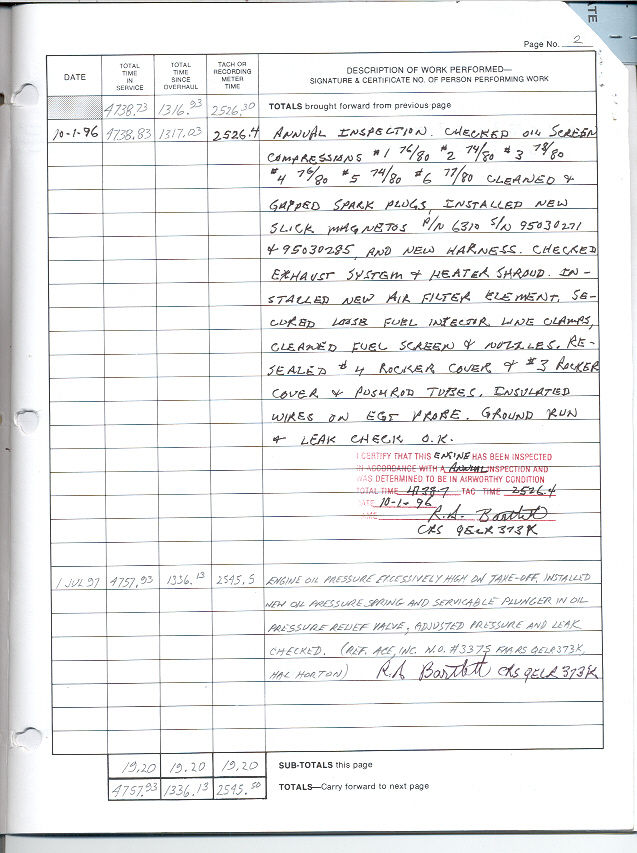 Page No. 2
DATE
TOTAL TIME IN SERVICE
TOTAL TIME SINCE OVERHAUL
TACH OR RECORDING METER TIME
DESCRIPTION OF WORK PERFORMED—
SIGNATURE & CERTIFICATE NO. OF PERSON PERFORMING WORK
4738.73 1316.93 2526.30 TOTALS brought forward from previous page
10-1-96 4738.83 1317.03 2526.4 ANNUAL INSPECTION. CHECKED OIL SCREEN
COMPRESSIONS #1 76/80 #2 74/80 #3 78/80
#4 76/80 #5 74/80 #6 77/80 CLEANED &
GAPPED SPARK PLUGS, INSTALLED NEW
SLICK MAGNETOS P/N 6310 S/N 95030271
& 95030285, AND NEW HARNESS. CHECKED
EXHAUST SYSTEM & HEATER SHROUD. IN-
STALLED NEW AIR FILTER ELEMENT, SE-
CURED LOOSE FUEL INJECTOR LINE CLAMPS,
CLEANED FUEL SCREEN & NOZZLES. RE-
SEALED #4 ROCKER COVER & #3 ROCKER
COVER & PUSHROD TUBES. INSULATED
WIRES ON EGT PROBE. GROUND RUN
& LEAK CHECK O.K.
I CERTIFY THAT THIS ENGINE HAS BEEN INSPECTED
IN ACCORDANCE WITH A ANNUAL INSPECTION AND
WAS DETERMINED TO BE IN AIRWORTHY CONDITION
TOTAL TIME 4738.7 TAC TIME 2526.4
DATE 10-1-96
NAME R.A. Bartlett
CRS QELR373K
1 JUL 97 4757.93 1336.13 2545.5 ENGINE OIL PRESSURE EXCESSIVELY HIGH ON TAKE-OFF, INSTALLED
NEW OIL PRESSURE SPRING AND SERVICABLE PLUNGER IN OIL
PRESSURE RELIEF VALVE, ADJUSTED PRESSURE AND LEAK
CHECKED. (REF. ACE, INC. W.O. #3375 FAA RS QELR373K,
HAL HORTON) R.A. Bartlett CRS QELR 373K
19.20 19.20 19.20 SUB-TOTALS this page
4757.93 1336.13 2545.50 TOTALS—Carry forward to next page